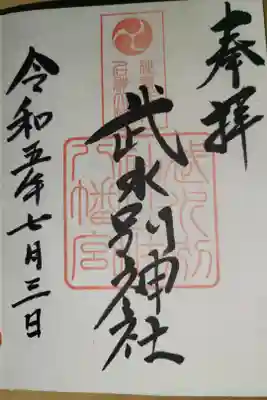 奉拝
武水別神社
八幡宮
令和五年七月三日